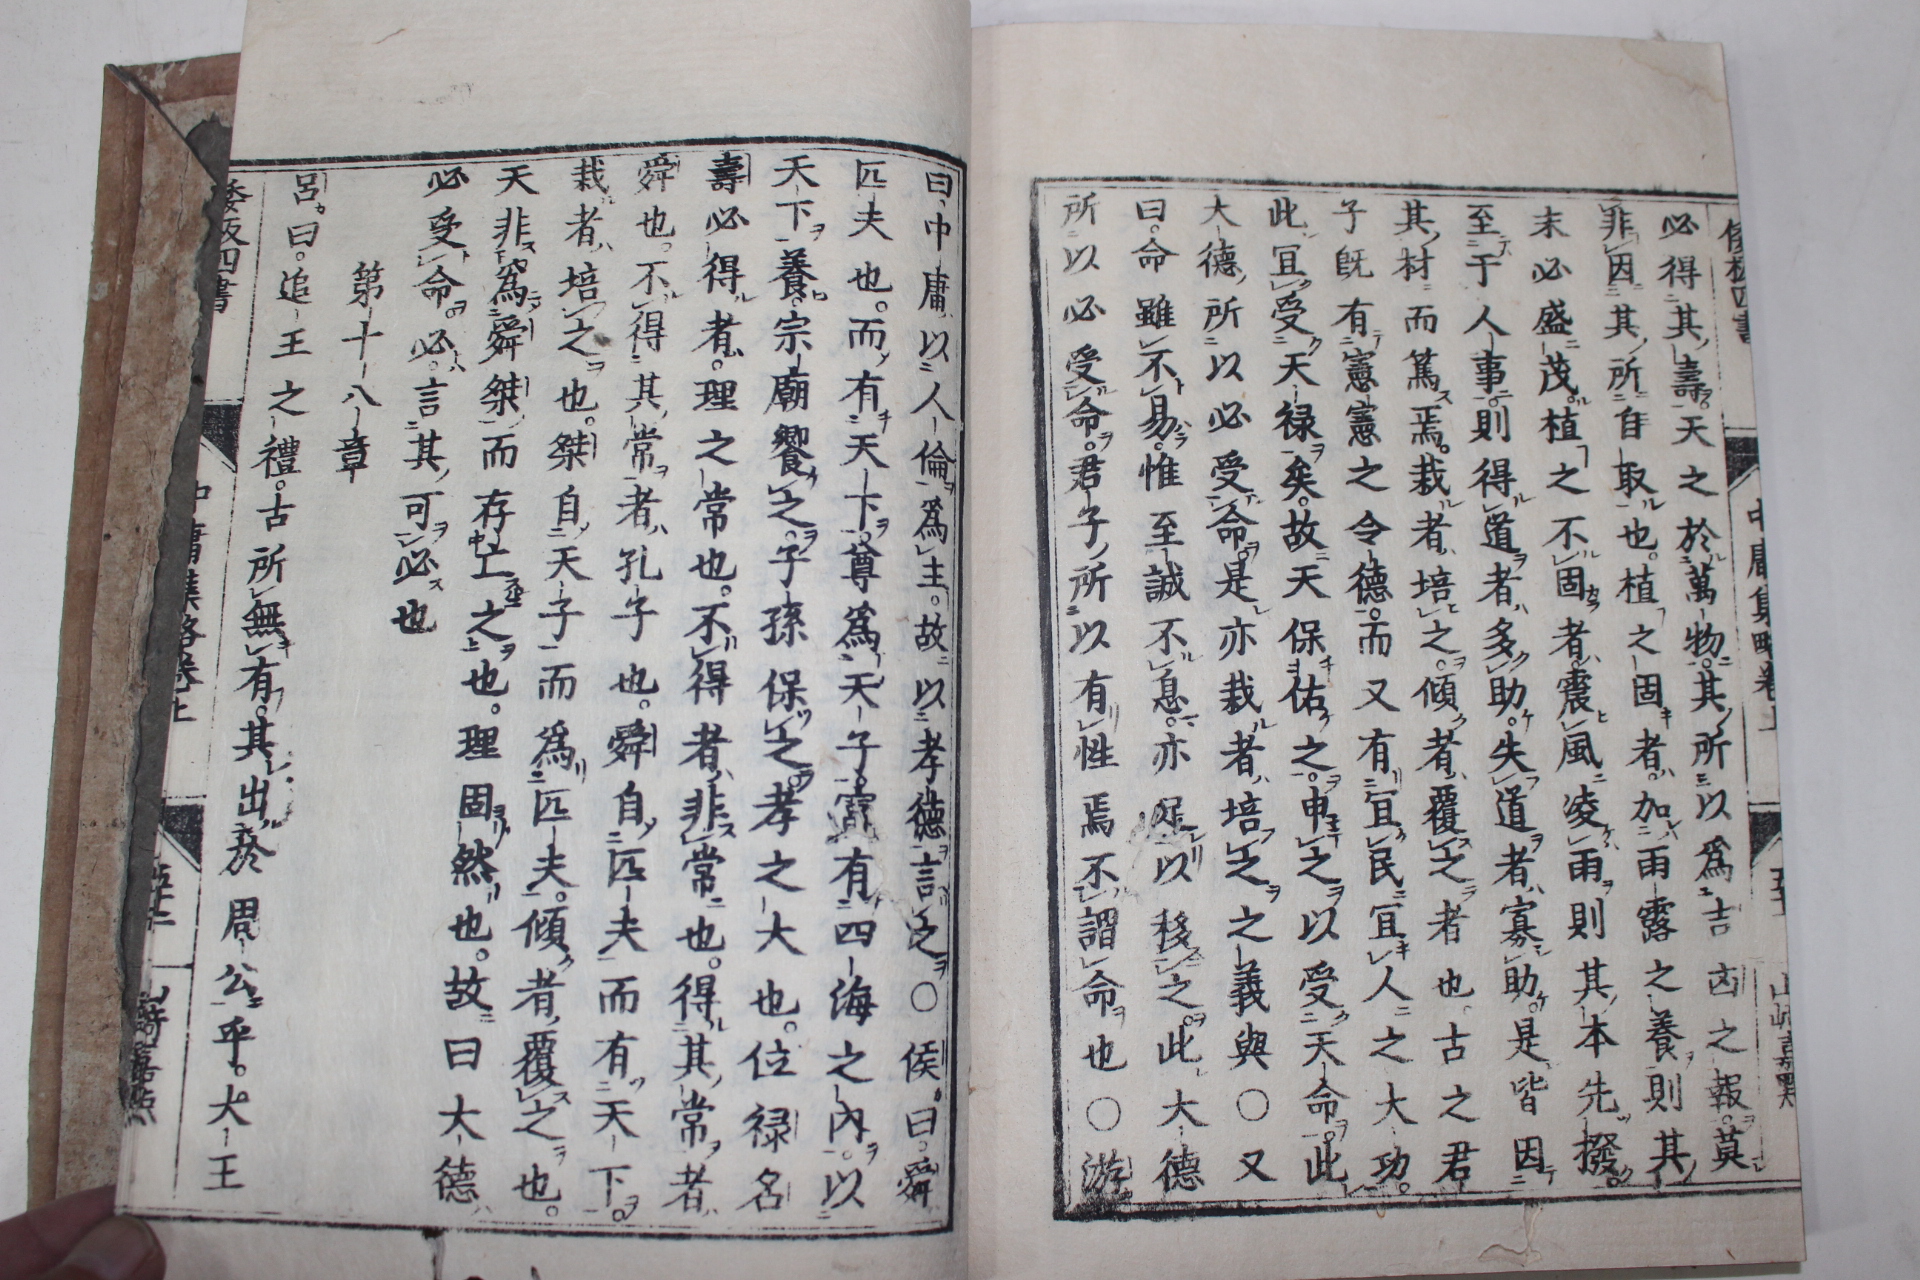 倭板四書 中庸集略卷上 山崎嘉點
必得其壽。天之於萬物。其所以爲吉凶之報。莫
非因其所自取也。植之固者。加雨露之養。則其
末必盛茂。植之不固者。震風凌雨。則其本先撥。
至于人事。則得道者多助。失道者寡助。是皆因
其材而篤焉。栽者培之。傾者覆之者也。古之君
子既有憲憲之令德。而又有宜民宜人之大功。
此宜受天禄矣。故天保佑之。申之以受天命。此
大德所以必受命。是亦栽者培之之義與〇又
曰。命雖不易。惟至誠不息。亦足以移之。此大德
所以必受命。君子所以有性焉不謂命也〇游
曰。中庸以人倫爲主。故以孝德言之〇侯曰。舜
匹夫也。而有天下。尊爲天子。富有四海之內。以
天下養。宗廟饗之。子孫保之。孝之大也。位禄名
壽必得者。理之常也。不得者。非常也。得其常者
舜也。不得其常者。孔子也。舜自匹夫而有天下。
栽者。培之也。桀自天子而爲匹夫。傾者。覆之也。
天非爲舜桀而存亡之也。理固然也。故曰大德
必受命。必。言其可必也
第十八章
呂曰。追王之禮。古所無有。其出於周公乎。大王
倭板四書 中庸集略卷上 山崎嘉點